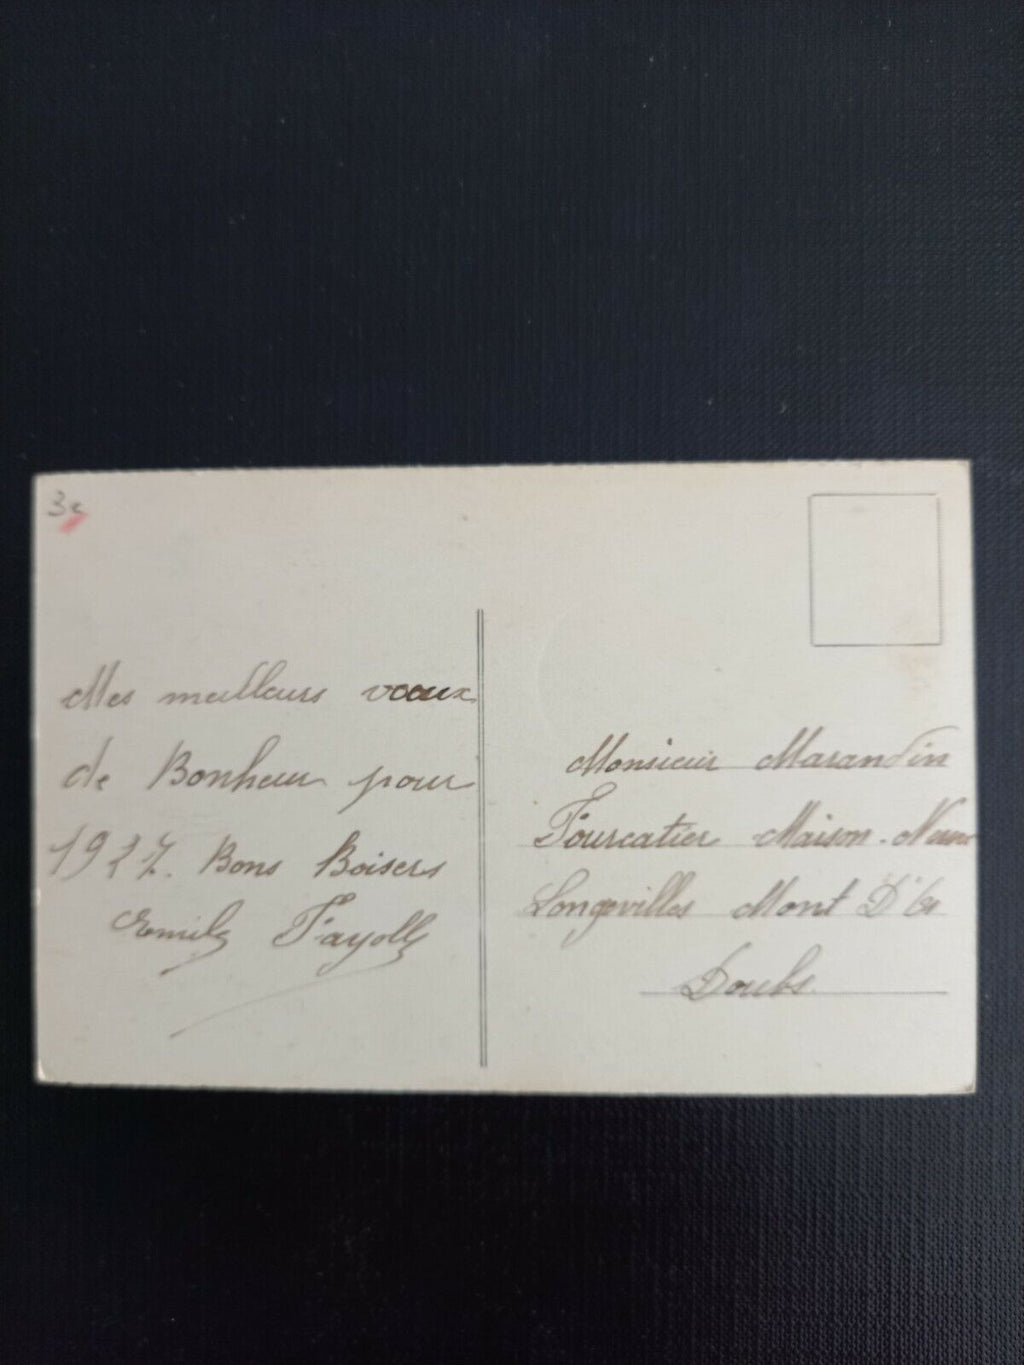 3e
Mes meilleurs voeux
de Bonheur pour
1927. Bons Boisers
Emile Fayolle
Monsieur Marandin
Fourcatier Maison-Neuve
Longevilles Mont D'Or
Doubs.